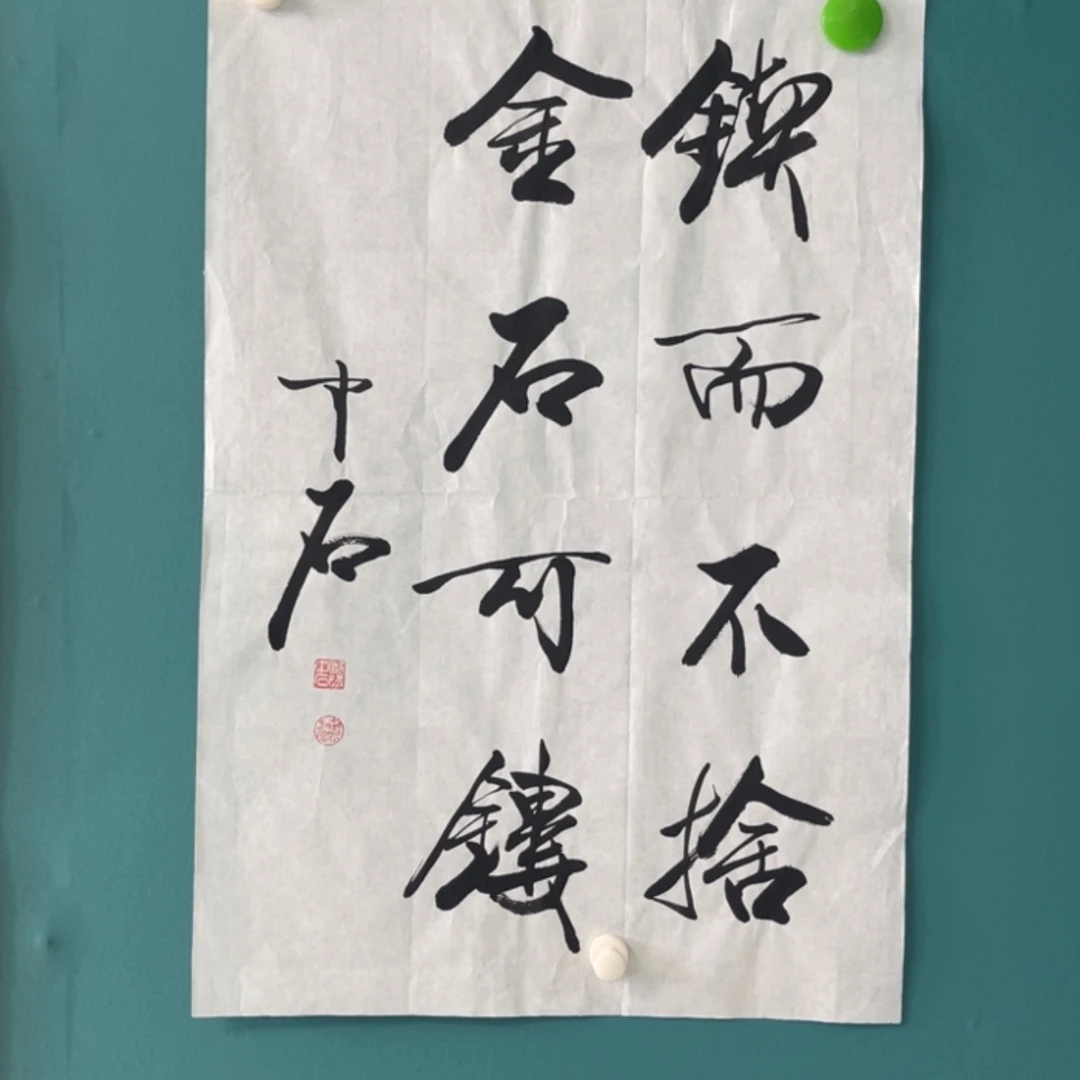 鍥而不捨
金石可鏤
中石